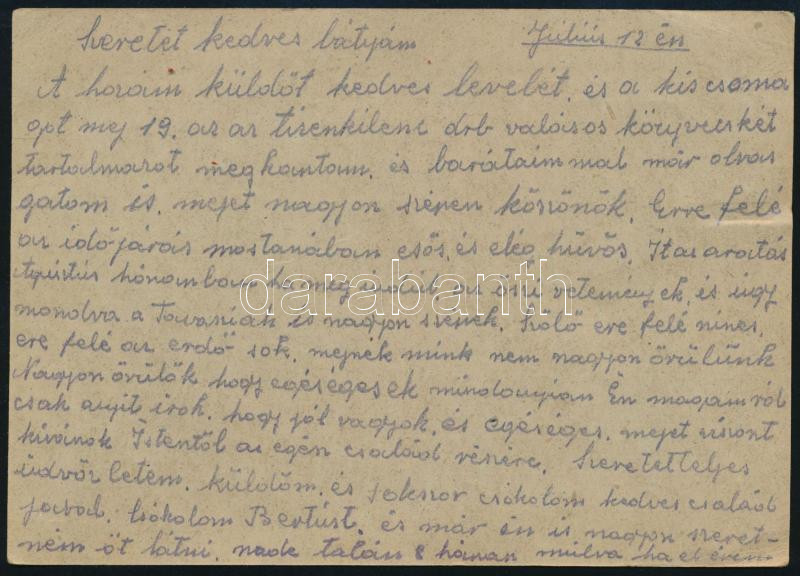 Szeretet kedves bátyám Július 12 én
A hozám küldöt kedves levelét, és a kis csoma
got mej 19. az az tizenkilenc drb valásos könyvecskét
tartalmazot megkaptam, és barátaimmal már olvas
gatom is, mejet nagyon szépen köszönök. Erre felé
az időjárás mostanában esős, és elég hüvös. It az aratás
Agustús hónamban indul az őszi vetemények, és úgy
mondva a Tavasziak is nagyon szépek. Szőlő ere felé nincs,
ere felé az erdő sok, mejnek mink nem nagyon örülünk
Nagyon örülök hogy egéségesek mindanyian Én magamról
csak anyit irok, hogy jól vagyok, és egéséges, mejet viszont
kivánok Istentől az egén család részére. Szeretetteljes
üdvözletem, küldöm, és sokszor csókolom kedves család
javal. Csókolom Bertúst, és már én is nagyon szeret-
ném őt látni, nade talán 8 hónan múlva ha el érem
darabanth